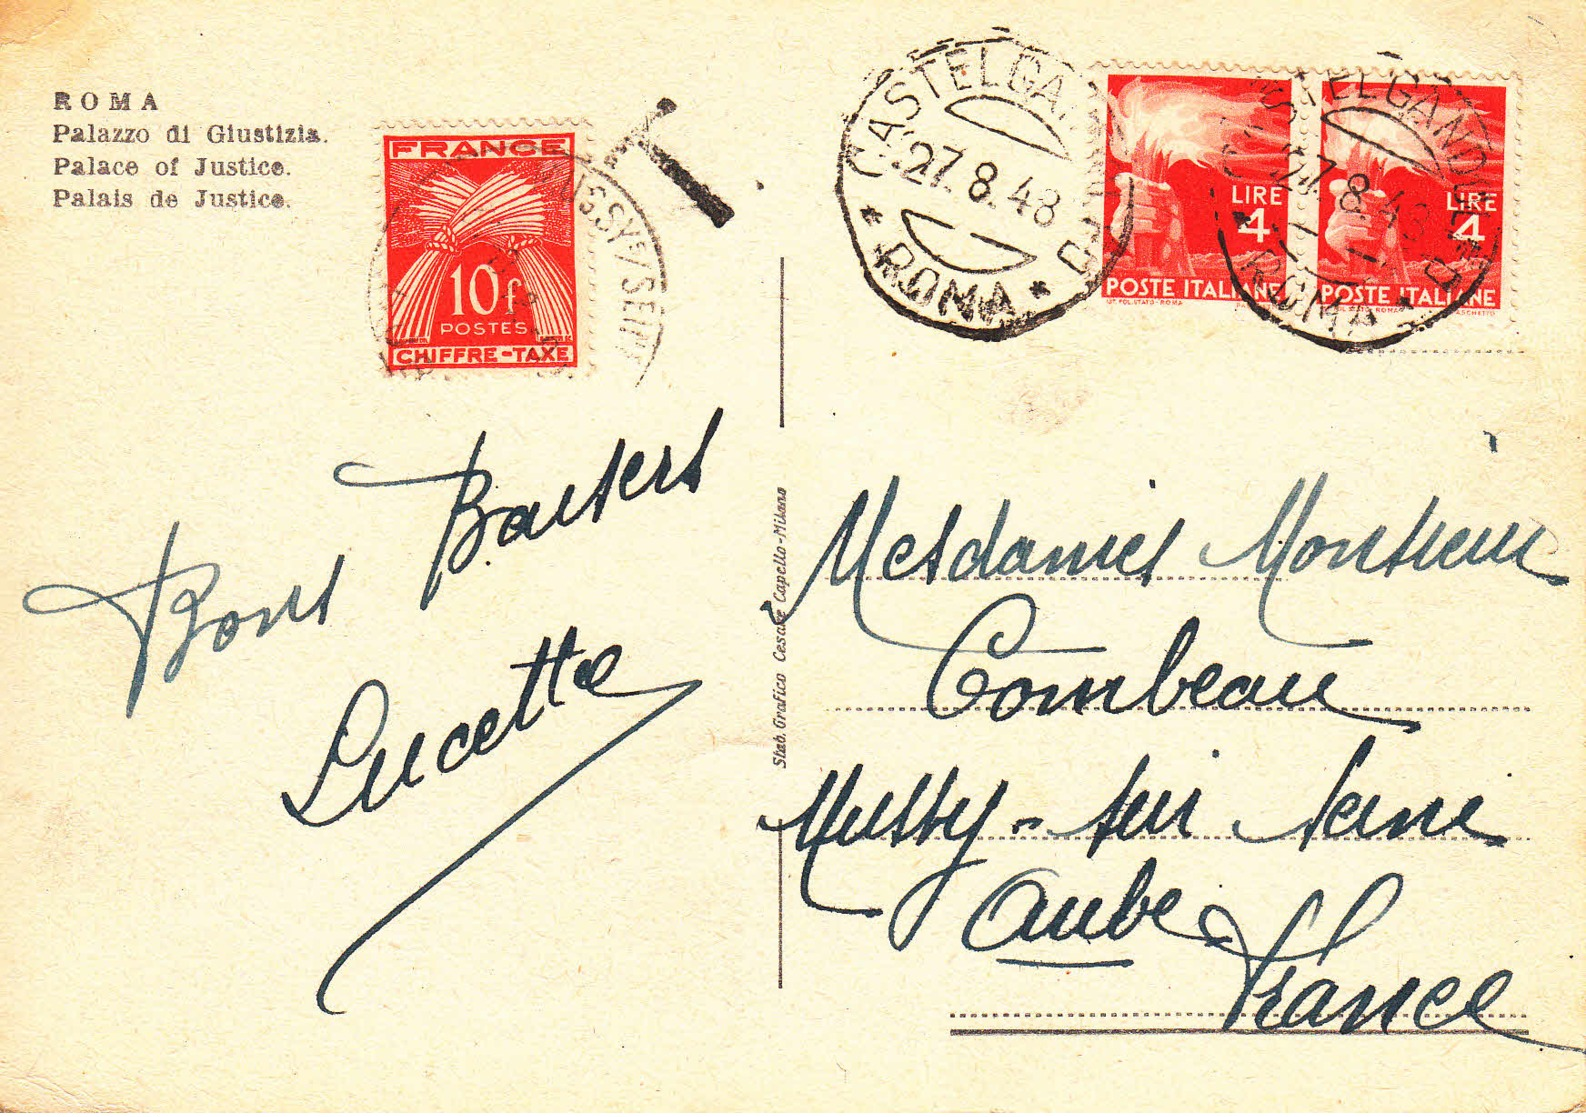 ROMA
Palazzo di Giustizia.
Palace of Justice.
Palais de Justice.
FRANCE
10f
POSTES
CHIFFRE-TAXE
MUSSY S/SEINE
T
CASTELGANDOLFO
27.8.48
* ROMA *
LIRE
4
POSTE ITALIANE
LIRE
4
POSTE ITALIANE
CASTELGANDOLFO
27.8.48
ROMA *
Bons Baisers
Lucette
Stab. Grafico Cesare Capello-Milano
Mesdames Monsieur
Combeau
Mussy-sur Seine
Aube
France